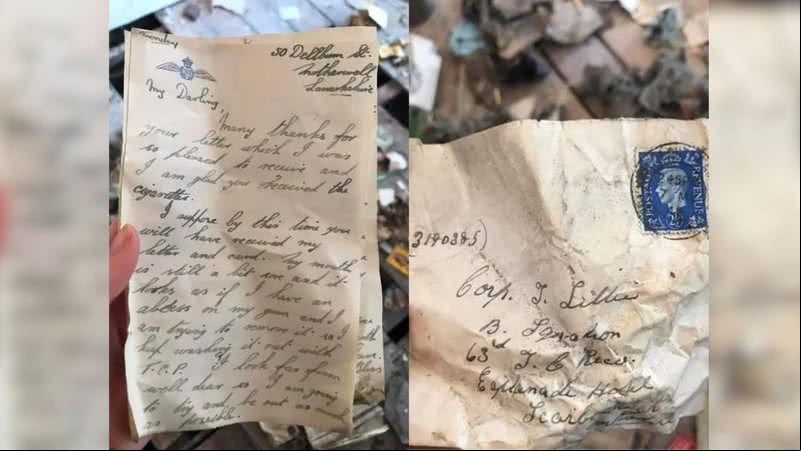 Monday
50 Dellburn St.
Motherwell
Lanarkshire
My Darling,
Many thanks for
your letter which I was
so pleased to receive and
I am glad you received the
cigarettes.
I suppose by this time you
will have received my
letter and card. My mouth
is still a bit sore and it
looks as if I have an
abcess on my gum and I
am trying to remove it so I
keep washing it out with
T.C.P. I look far from
well dear so I am going
to try and be out as much
as possible.
POSTAGE REVENUE
3190385)
Corp. J.
B. Squadron
63rd T. C. Recce.
Esplanade Hotel